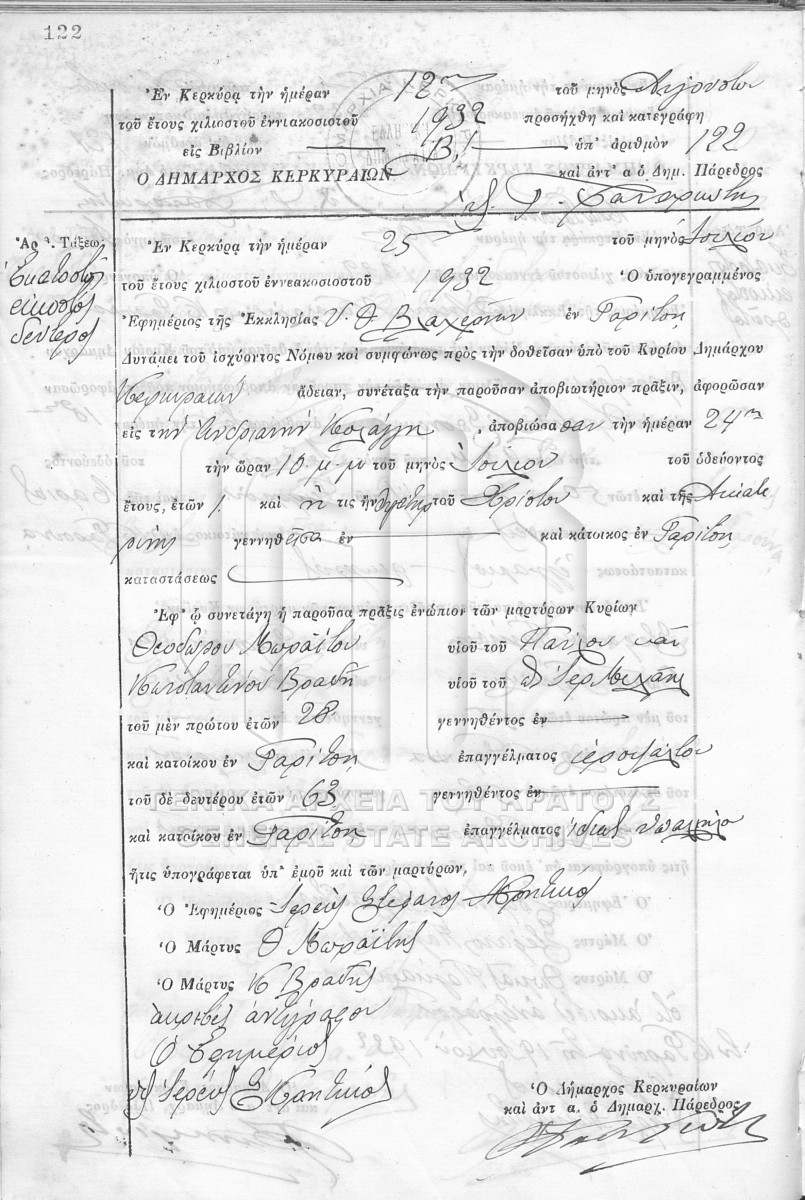 122
Ἐν Κερκύρᾳ τὴν ἡμέραν 12ην τοῦ μηνὸς Αὐγούστου
τοῦ ἔτους χιλιοστοῦ ἐννιακοσιοτοῦ 1932 προσήχθη καὶ κατεγράφη
εἰς Βιβλίον Β,1 ὑπ' ἀριθμὸν 122
Ο ΔΗΜΑΡΧΟΣ ΚΕΡΚΥΡΑΙΩΝ καὶ ἀντ' α ὁ Δημ. Πάρεδρος
Ἀρ. Τάξεως
Ἑκατοστὸς
εἰκοστὸς
δεύτερος
Ἐν Κερκύρᾳ τὴν ἡμέραν 25 τοῦ μηνὸς Ἰουλίου
τοῦ ἔτους χιλιοστοῦ ἐννεακοσιοστοῦ 1932 Ὁ ὑπογεγραμμένος
Ἐφημέριος τῆς Ἐκκλησίας Υ. Θ. Βλαχερνῶν ἐν Γαρίτσῃ
Δυνάμει τοῦ ἰσχύοντος Νόμου καὶ συμφώνως πρὸς τὴν δοθεῖσαν ὑπὸ τοῦ Κυρίου Δημάρχου
Κερκυραίων ἄδειαν, συνέταξα τὴν παροῦσαν ἀποβιωτήριον πρᾶξιν, ἀφορῶσαν
εἰς τὴν Ἀνδριανὴν Κολάγγη, ἀποβιώσασαν τὴν ἡμέραν 24ην
τὴν ὥραν 10 μ.μ τοῦ μηνὸς Ἰουλίου τοῦ ὁδεύοντος
ἔτους, ἐτῶν 1 καὶ ἥ τις ἦν θυγάτηρ τοῦ Χρίστου καὶ τῆς Αἰκατε
ρίνης γεννηθεῖσα ἐν καὶ κάτοικος ἐν Γαρίτσῃ
καταστάσεως
Ἐφ' ᾧ συνετάγη ἡ παροῦσα πρᾶξις ἐνώπιον τῶν μαρτύρων Κυρίων
Θεοδώρου Μωραΐτου υἱοῦ τοῦ Παύλου καὶ
Κωνσταντίνου Βραδῆ υἱοῦ τοῦ
τοῦ μὲν πρώτου ἐτῶν 28 γεννηθέντος ἐν
καὶ κατοίκου ἐν Γαρίτσῃ ἐπαγγέλματος ἱεροψάλτου
τοῦ δὲ δευτέρου ἐτῶν 63 γεννηθέντος ἐν
καὶ κατοίκου ἐν Γαρίτσῃ ἐπαγγέλματος ἰδιωτ. ὑπαλλήλου
ΓΕΝΙΚΑ ΑΡΧΕΙΑ ΤΟΥ ΚΡΑΤΟΥΣ
GENERAL STATE ARCHIVES
ἥτις ὑπογράφεται ὑπ' ἐμοῦ καὶ τῶν μαρτύρων,
Ὁ Ἐφημέριος Ἱερεὺς Στέφανος Κρητικὸς
Ὁ Μάρτυς Θ Μωραΐτης
Ὁ Μάρτυς Κ Βραδῆς
ἀκριβὲς ἀντίγραφον
Ὁ Ἐφημέριος
Ἱερεὺς Σ Κρητικός
Ὁ Δήμαρχος Κερκυραίων
καὶ ἀντ α. ὁ Δημαρχ. Πάρεδρος